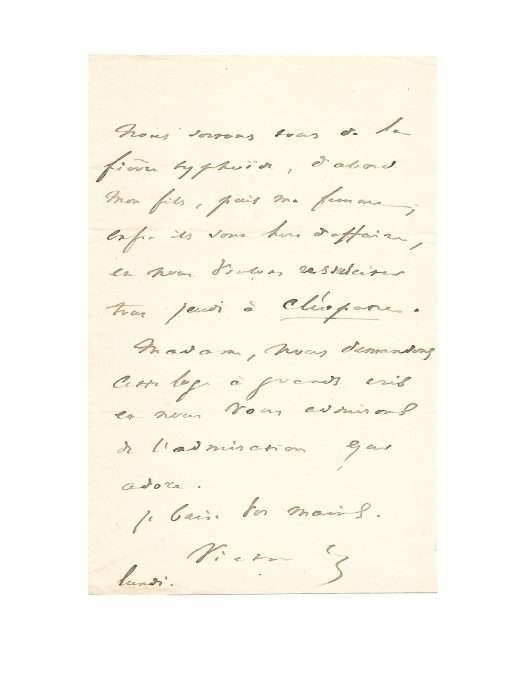 Nous sortons tous de la
fièvre typhoïde, d'abord
mon fils, puis ma femme,
enfin ils sont hors d'affaire,
et nous voulons ressusciter
tous jeudi à Cléopatre.
Madame, nous demandons
cette loge à grands cris
et nous vous admirons
de l'admiration qui
adore.
je baise vos mains.
lundi.